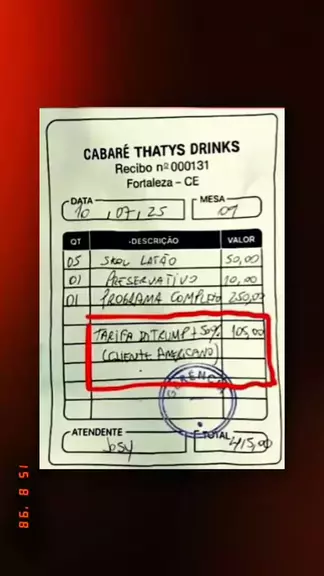 CABARÉ THATYS DRINKS
Recibo nº 000131
Fortaleza - CE
DATA MESA
10 / 07 / 25
QT -DESCRIÇÃO VALOR
05 SKOL LATÃO 50,00
01 PRESERVATIVO 10,00
01 PROGRAMA COMPLETO 250,00
TARIFA D.TRUMP + 50% 105,00
(CLIENTE AMERICANO)
GERÊNCIA
ATENDENTE TOTAL
Josy 415,00
15 8 '98